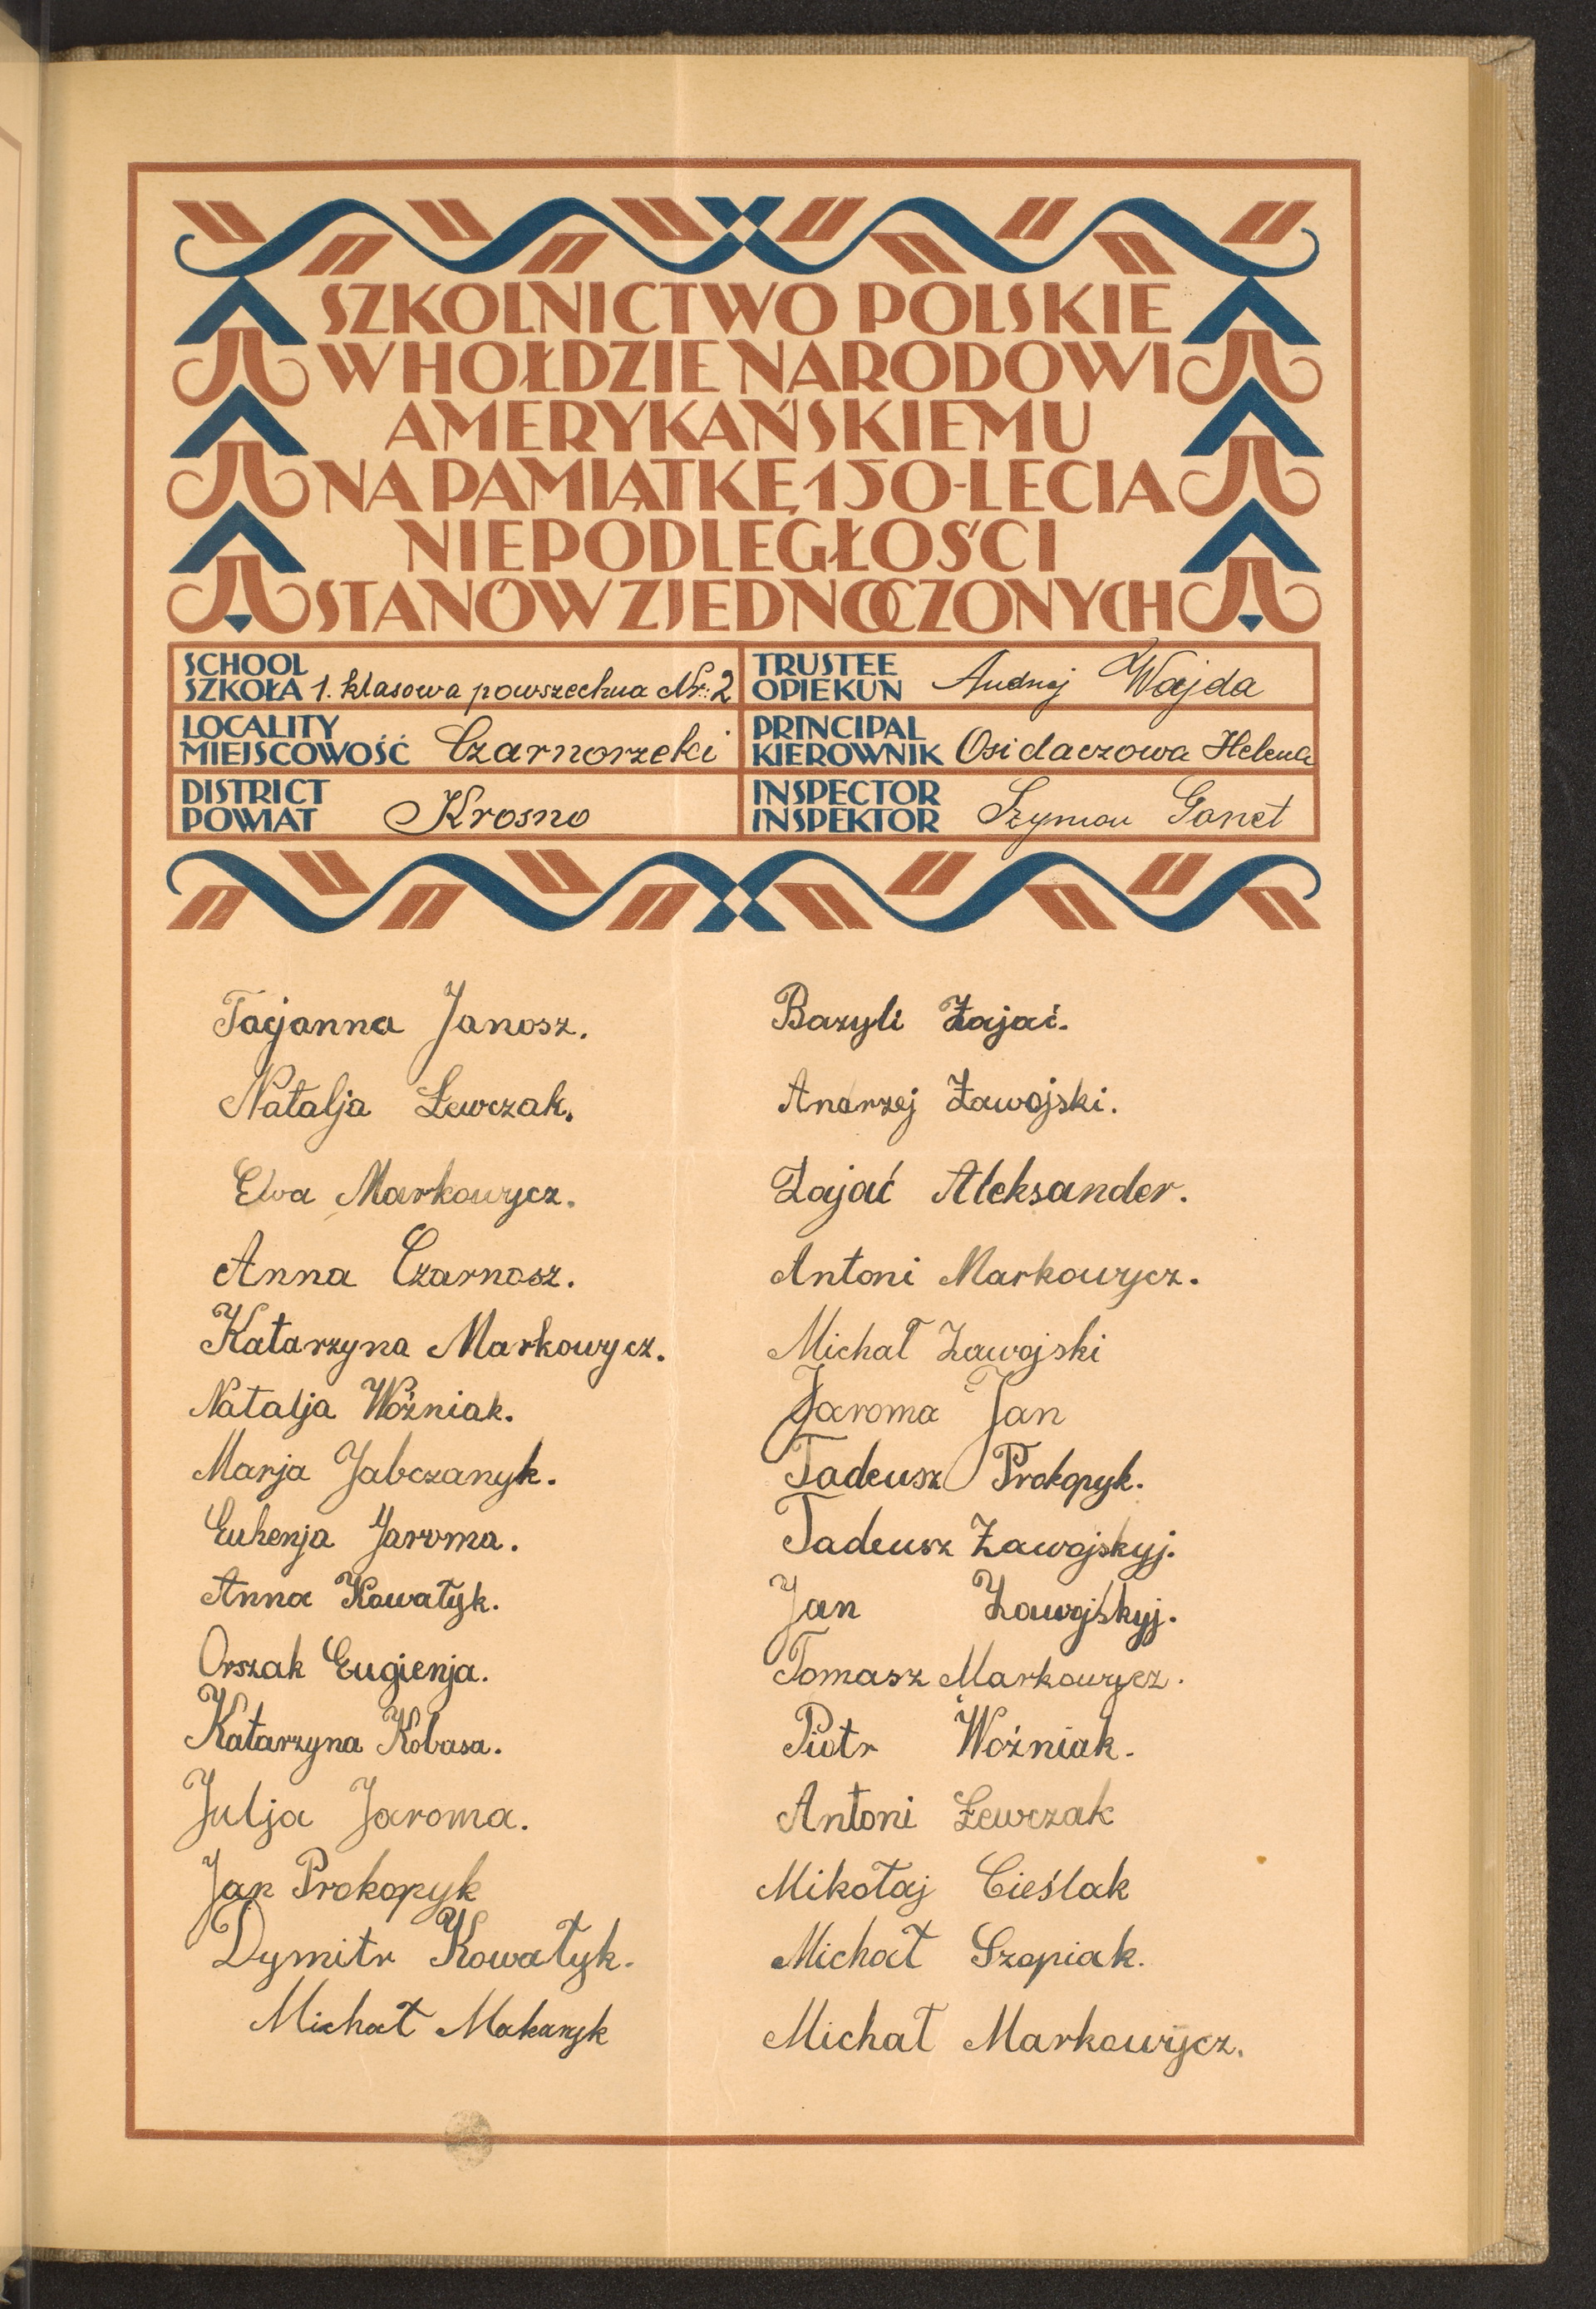 SZKOLNICTWO POLSKIE
W HOŁDZIE NARODOWI
AMERYKAŃSKIEMU
NA PAMIĄTKĘ 150-LECIA
NIEPODLEGŁOŚCI
STANÓW ZJEDNOCZONYCH
SCHOOL
SZKOŁA 1. klasowa powszechna Nr: 2
TRUSTEE
OPIEKUN Andrzej Wajda
LOCALITY
MIEJSCOWOŚĆ Czarnorzeki
PRINCIPAL
KIEROWNIK Osidaczowa Helena
DISTRICT
POWIAT Krosno
INSPECTOR
INSPEKTOR Szymon Gonet
Tacjanna Janosz.
Natalja Lewczak.
Ewa Markowycz.
Anna Czarnosz.
Katarzyna Markowycz.
Natalja Woźniak.
Marja Jabczanyk.
Euhenja Jaroma.
Anna Kowałyk.
Orszak Eugienja.
Katarzyna Kobasa.
Julja Jaroma.
Jan Prokopyk
Dymitr Kowałyk.
Michał Makaryk
Bazyli Zająć.
Andrzej Zawojski.
Zająć Aleksander.
Antoni Markowycz.
Michał Zawojski
Jaroma Jan
Tadeusz Prokopyk.
Tadeusz Zawojskyj.
Jan Zawojśkyj.
Tomasz Markowycz.
Piotr Woźniak.
Antoni Lewczak
Mikołaj Cieślak
Michał Szopiak.
Michał Markowycz.